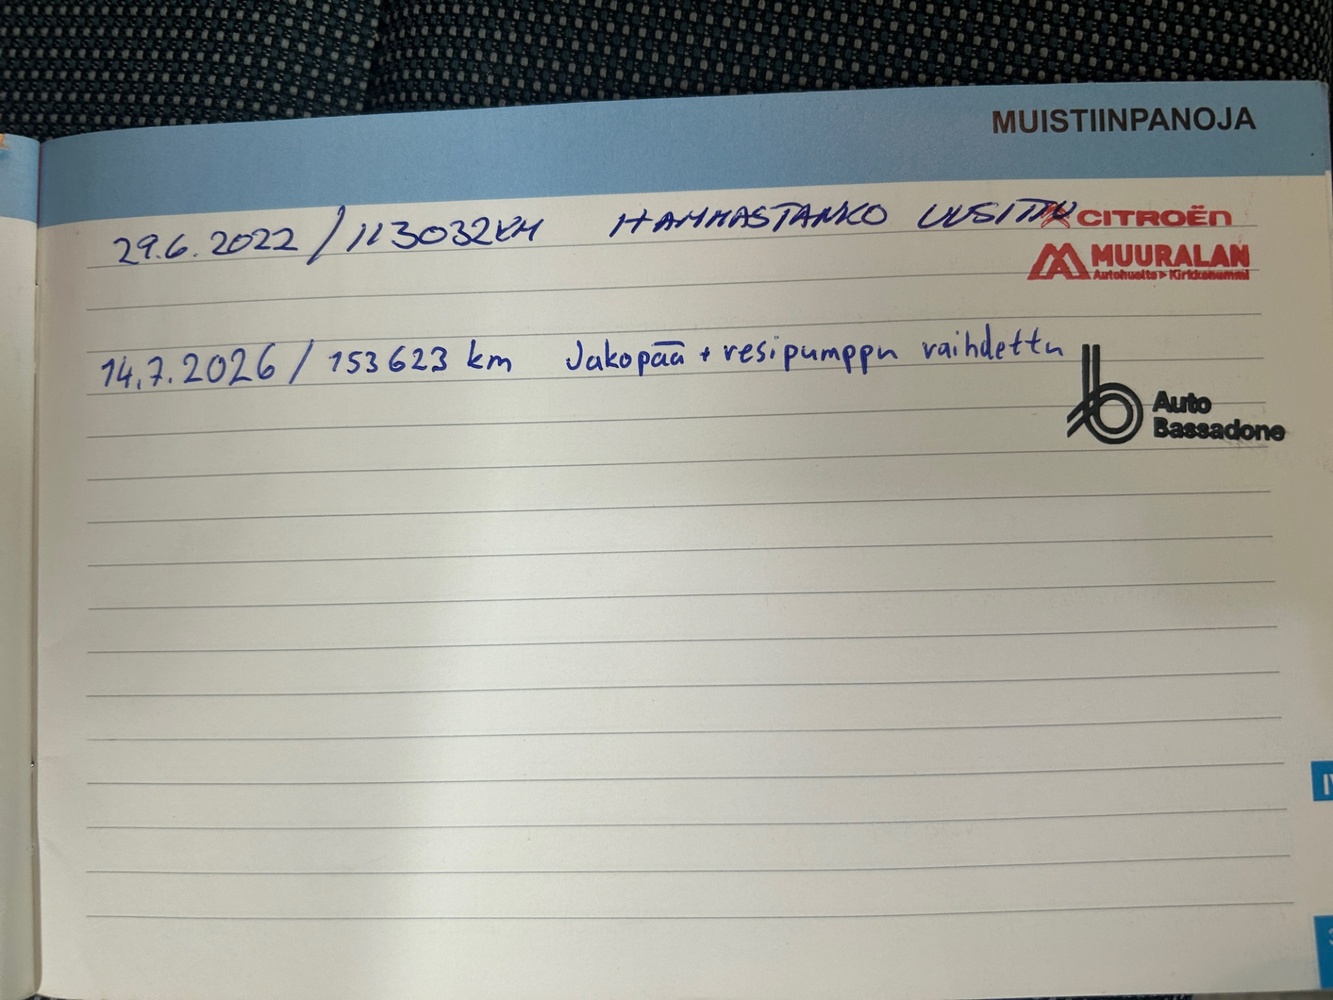 MUISTIINPANOJA
29.6.2022 / 113032KM HAMMASTANKO UUSITTU
CITROËN
MUURALAN
Autohuolto Kirkkonummi
14.7.2026 / 153623 km Jakopää + vesipumppu vaihdettu
Auto
Bassadone